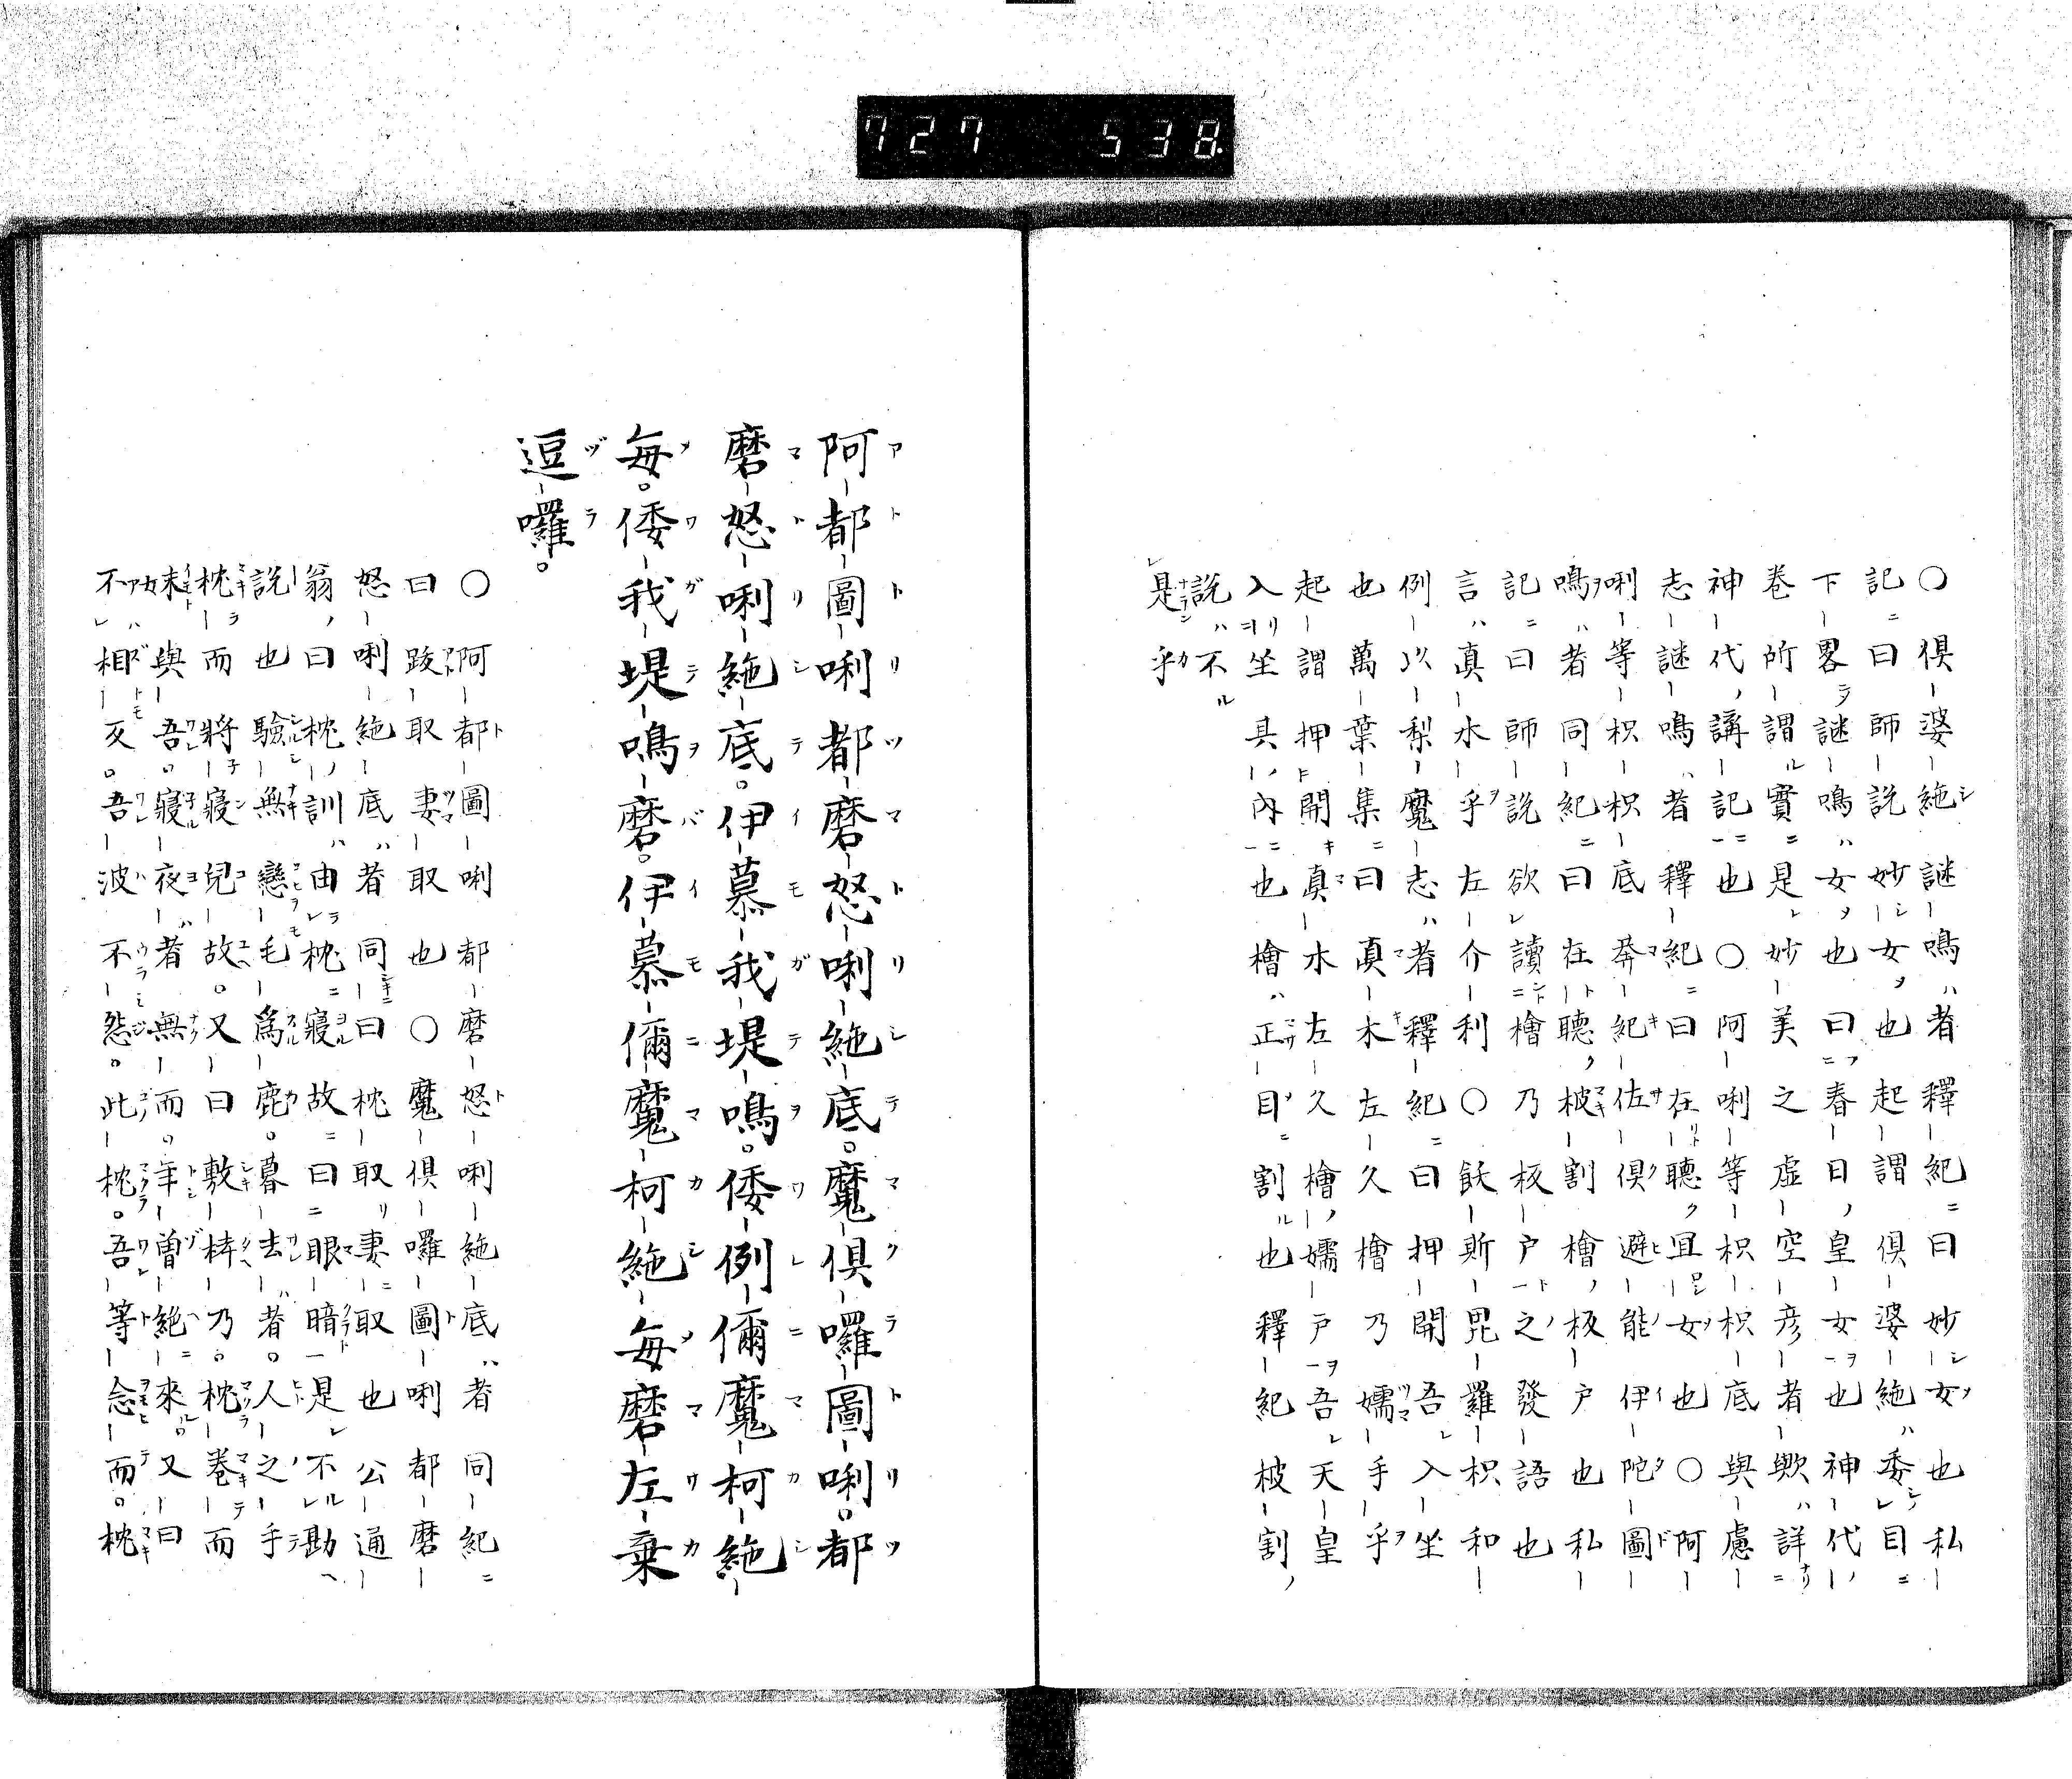 727 538
〇倶婆絁謎鳴者釋紀曰妙女也私
記曰師説妙女也起謂倶婆絁委目
下畧謎鳴女也曰春日皇女也神代
卷所謂實是妙美之虚空彦者歟詳
神代講記也〇阿唎等枳枳底與慮
志謎鳴者釋紀曰在聽宜女也〇阿
唎等枳枳底莽紀佐倶避能伊陀圖
鳴者同紀曰在聽柀割檜板戸也私
記曰師説欲讀檜乃板戸之發語也
言真水乎左介利〇飫斯毘羅枳和
例以梨魔志者釋紀曰押開吾入坐
也萬葉集曰真木左久檜乃嬬手乎
起謂押開真木左久檜嬬戸吾天皇
入坐具内也檜正目割也釋紀柀割
説不
是乎
阿都圖唎都磨怒唎絁底。魔倶囉圖唎。都
磨怒唎絁底。伊慕我堤鳴。倭例儞魔柯絁
毎。倭我堤鳴磨。伊慕儞魔柯絁毎磨左棄
逗囉。
〇阿都圖唎都磨怒唎絁底者同紀
曰跛取妻取也〇魔倶囉圖唎都磨
怒唎絁底者同曰枕取妻取也公通
翁曰枕訓由枕寢故曰眼暗是不勘
説也驗無戀毛為鹿。暮去者。人之手
枕而將寢兒故。又曰敷栲乃。枕卷而
妹與吾。寢夜者無而。年曽絶來。又曰
不相夜。吾波不怨。此枕。吾等念而。枕